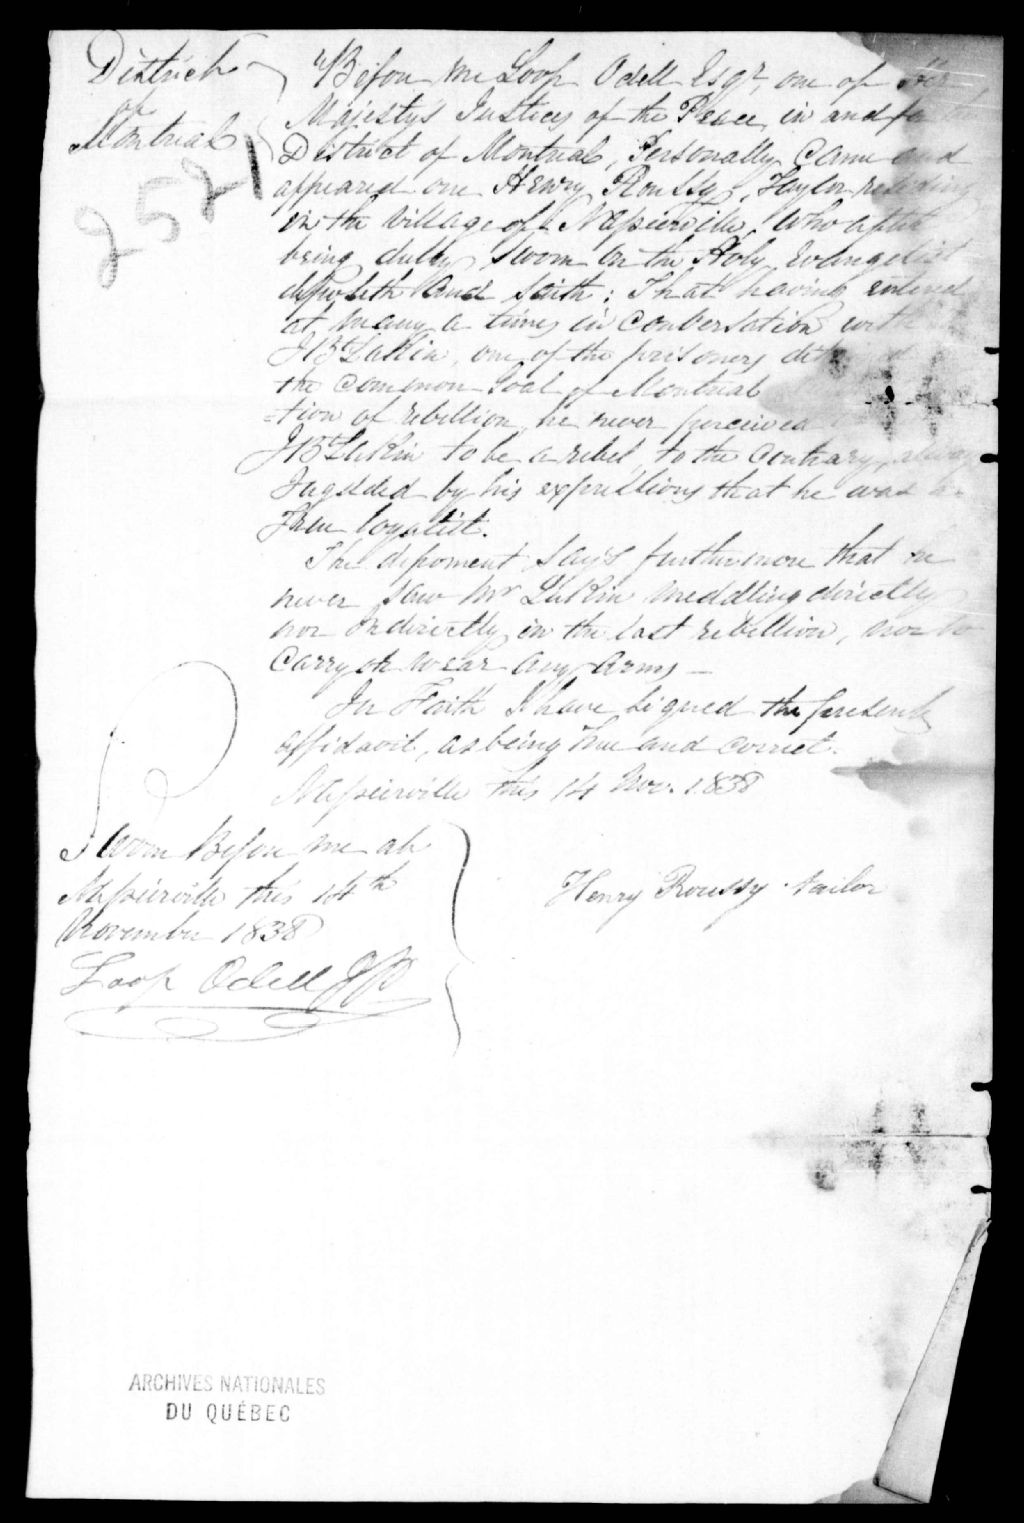 District
of
Montreal
2521
Before me Loop Odell Esqr, one of Her
Majesty's Justices of the Peace, in and for the
District of Montreal, Personally Came and
appeared one Henry Roussy, Taylor residing
in the Village of Napierville, Who after
being dully sworn on the Holy Evangelist
deposeth and saith: That having entered
at many a times in Conversation with
J Bt Lukin, one of the prisoners detained
the Common Goal of Montreal
-tion of rebellion, he never perceived
J Bt Lukin to be a rebel, to the Contrary, always
Jugeded by his expressions that he was a
True loyalist.
The deponent says furthermore that he
never saw Mr Lukin meddling directly
nor Indirectly in the last rebellion, nor to
Carry or wear any arms —
In Faith I have signed the present
affidavit, as being True and correct.
Napierville this 14 Nov. 1838
Sworn Before me at
Napierville this 14th
November 1838
Loop Odell JP
Henry Roussy tailor
ARCHIVES NATIONALES
DU QUÉBEC